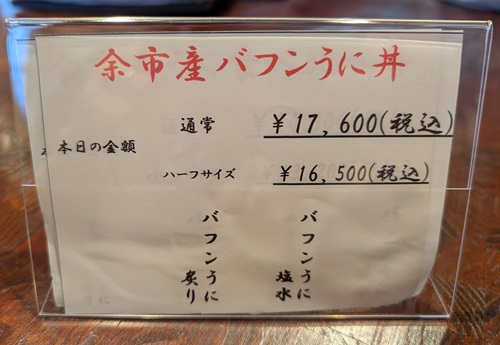 余市産バフンうに丼
通常 ￥17,600(税込)
本日の金額
ハーフサイズ ￥16,500(税込)
バフンうに塩水
バフンうに炙り